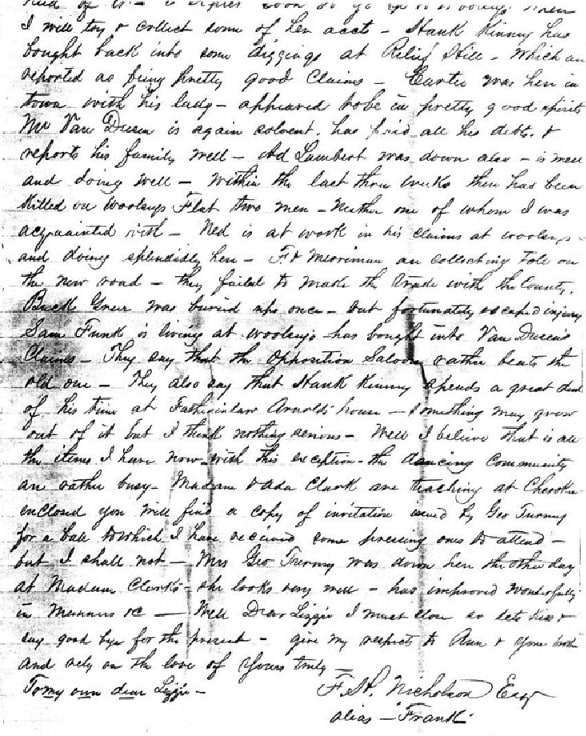 I will try & collect some of her accts - Hank Kinny has
bought back into some diggings at Relief Hill - Which are
reported as being pretty good Claims - Carter was here in
town with his lady - appeared to be in pretty good spirits
Mr Van Dusen is again solvent, has paid all his debts, &
reports his family well - Ad Lambert was down also - is well
and doing well - Within the last three weeks there has been
killed on Woolseys Flat two men - Neither one of whom I was
acquainted with - Ned is at work in his claims at Woolseys
and doing splendidly here - F & Merriman are collecting Tole on
the new road - they failed to make the trade with the County.
Buck Greer was buried up once - but fortunately escaped injury
Sam Funk is living at Woolseys has bought into Van Dusens
Claims - They say that the Opposition Saloon rather beats the
old one - They also say that Hank Kinny spends a great deal
of his time at Fatherinlaw Arnolds house - something may grow
out of it but I think nothing serious - Well I believe that is all
the items I have now with this exception - the dancing Community
are rather busy - Madam & Ada Clark are teaching at Cherokee
enclosed you will find a copy of invitation issued by Geo
for a ball to which I have received some pressing ones to attend -
but I shall not - Mrs Geo was down here the other day
at Madam Clark's - she looks very well - has improved wonderfully
in Manners &c - Well Dear Lizzie I must close so lets kiss &
say good bye for the present - give my respects to Ann & your
and rely on the love of Yours truly -
To my own dear Lizzie - F. H. Nicholson Esq
alias - "Frank"